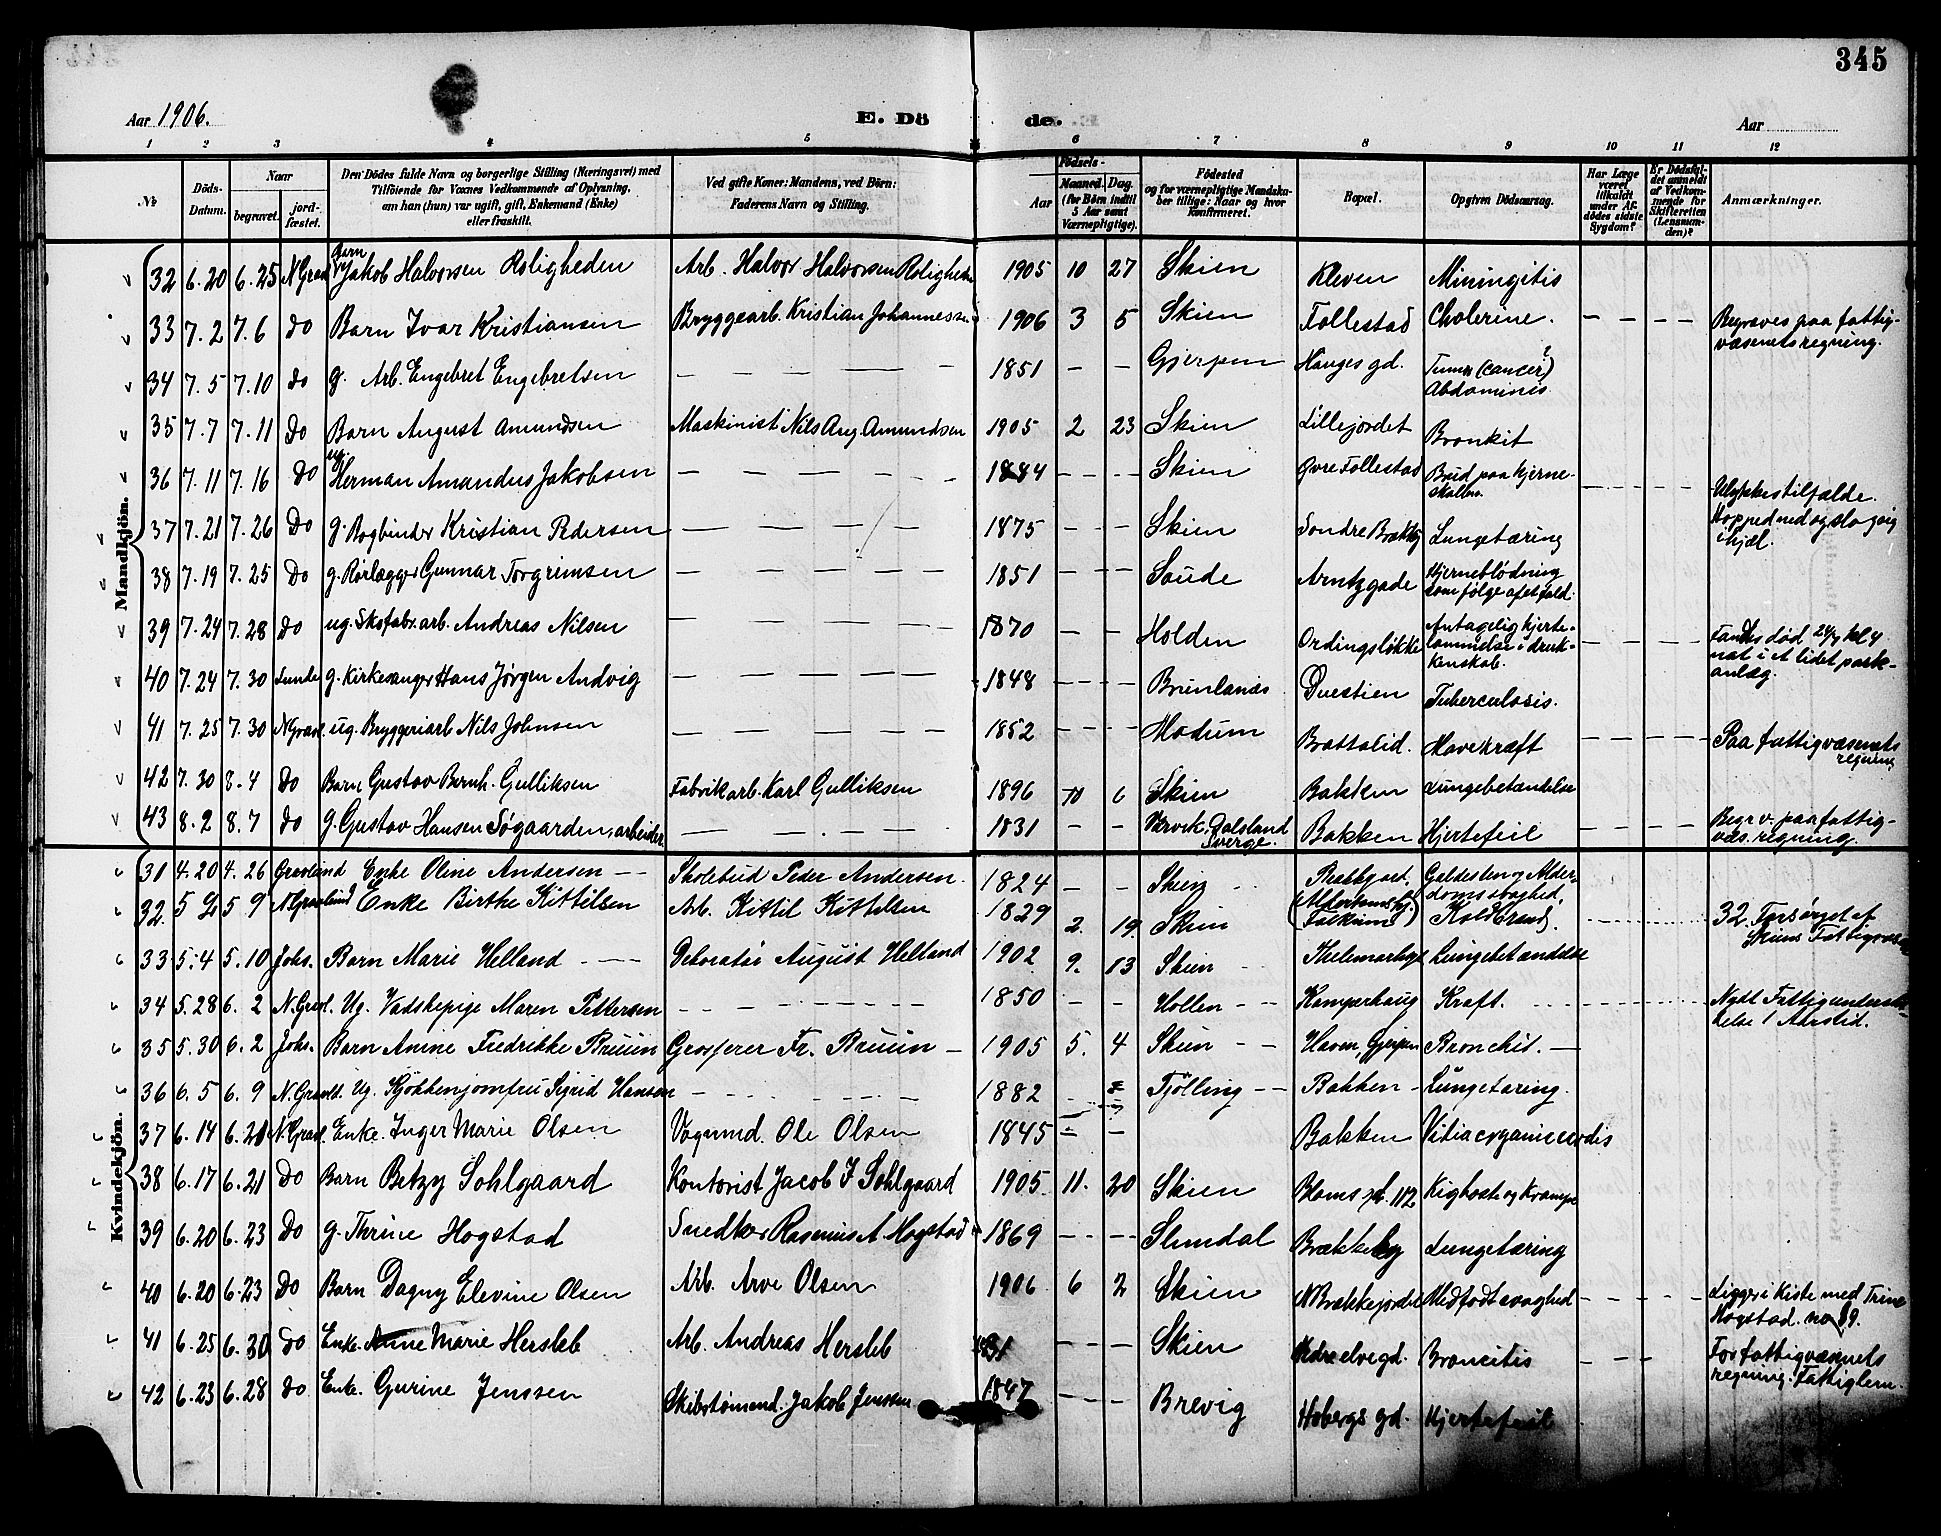 345
Aar 1906.
E. Döde.
Aar
1 2 3 4 5 6 7 8 9 10 11 12
No
Döds-Datum.
Naar
begravet.
jordfæstet.
Den Dödes fulde Navn og borgerlige Stilling (Næringsvei) med Tilföiende for Voxnes Vedkommende af Oplysning, om han (hun) var ugift, gift, Enkemand (Enke) eller fraskilt.
Ved gifte Koner: Mandens, ved Börn: Faderens Navn og Stilling.
Födsels-
Aar
Maaned. Dag.
(for Börn indtil 5 Aar samt Værnepligtige).
Födested og for værnepligtige Mandskaber tillige: Naar og hvor konfirmeret.
Bopæl.
Opgiven Dödsaarsag.
Har Læge været tilkaldt under Afdödes sidste Sygdom?
Er Dödsfaldet anmeldt af Vedkommende for Skifteretten (Lensmanden)?
Anmærkninger.
Mandkjön.
32 6.20 6.25 N Gravl Barn Jakob Halvorsen Roligheden Arb. Halvor Halvorsen Roligheden 1905 10 27 Skien Kleven Miningitis
33 7.2 7.6 Do Barn Ivar Kristiansen Bryggearb. Kristian Johannessen 1906 3 5 Skien Follestad Cholerine. Begraves paa fattigvæsenets regning.
34 7.5 7.10 do g. Arb. Engebret Engebretsen 1851 Gjerpen Hauges gd. Tumor (cancer?) Abdominis
35 7.7 7.11 Do Barn August Amundsen Maskinist Nils Aug. Amundsen 1905 2 23 Skien Lillejordet Bronkit
36 7.11 7.16 Do ug. Herman Amandus Jakobsen 1884 Skien Øvre Follestad Brud paa hjerneskallen. Ulykkestilfælde. Hopped ned og slog sig ihjæl.
37 7.21 7.26 Do g. Bogbinder Kristian Pedersen 1875 Skien Søndre Brækkby Lungetæring
38 7.19 7.25 Do g. Rørlægger Gunnar Torgrimsen 1851 Saude Arntzgade Hjerneblødning som følge af et fald.
39 7.24 7.28 Do ug. Skofabr. arb. Andreas Nilsen 1870 Holden Ordingsløkke Antagelig hjertelammelse i drukkenskab. Fandtes død 24/7 kl 4 nat i et lidet parkanlæg.
40 7.24 7.30 Lunde g. Kirkesanger Hans Jørgen Andvig 1848 Brunlanæs Duestien Tuberculosis.
41 7.25 7.30 N Gravl. ug. Bryggeriarb Nils Johnsen 1852 Modum Brattalid. Mavekræft Paa fattigvæsenets regning
42 7.30 8.4 Do Barn Gustav Bernh. Gulliksen Fabrikarb. Karl Gulliksen 1896 10 6 Skien Bakken Lungebetændelse
43 8.2 8.7 Do g. Gustav Hansen Søgaarden, arbeider. 1831 Værvik, Dalsland Sverge. Bakken Hjertefeil Begr v. paa fattigvæs. regning.
Kvindekjön.
31 4.20 4.26 Gravlund Enke Oline Andersen Skolebud Peder Andersen. 1824 Skien Brækkged. Galdesten og Alderdomssvaghed.
32. 5 5 9 N. Gravlund Enke Birthe Kittilsen Arb. Kittil Kittilsen 1829 2. 19. Skien (Alderdomshj. Falkum) Koldbrand. 32. Forsørget af Skiens Fattigvæsen
33 5.4 5.10 Johs. Barn Marie Helland Dekoratør August Helland 1902 9. 13 Skien Thelemarksgt Lungebetændelse
34 5.28 6. 2 N. Gravl. Ug. Vadskepige Maren Pettersen 1850 Hollen Kamperhaug Kræft. Nydt Fattigunderstøttelse 1 Aarstid.
35 5.30 6.2 Johs. Barn Anine Fredrikke Bruun Grosserer Fr. Bruun 1905 5. 4 Skien Haven, Gjerpen Bronchit.
36 6.5 6. 9 N. Gravl. Ug. Kjøkkenjomfru Sigrid Hansen 1882 Tjølling Bakken Lungetæring.
37 6.14 6.21 N. Gravl Enke. Inger Marie Olsen Vognmd. Ole Olsen 1845 Bakken Vitia organic cordis
38 6.17 6.21 Do Barn Betzy Sohlgaard Kontorist Jacob I Sohlgaard 1905 11. 20 Skien Bloms gd. 112 Kighoste og Krampe
39 6.20 6.23 Do g. Thrine Hogstad Snedker Rasmus A. Hogstad 1869 Slemdal Brækkeby Lungetæring
40 6.20 6.23 Do Barn Dagny Elevine Olsen Arb. Arve Olsen 1906 6 2 Skien N Brækkejordet Medfødt svaghed Ligger i Kiste med Trine Hogstad. no 39.
41 6.25 6.30 Do Enke. Anne Marie Hersleb Arb. Andreas Hersleb Skien Nedre elvegd. Broncitis For fattigvæsnets regning. fattiglem.
42 6.23 6.28 Do Enke. Gurine Jenssen Skibstømmed. Jakob Jenssen 1847 Brevig Hobergs gd. Hjertefeil